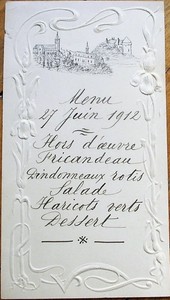 Menu
27 Juin 1912
Hors d'œuvre
Fricandeau
Dindonneaux rotis
Salade
Haricots verts
Dessert